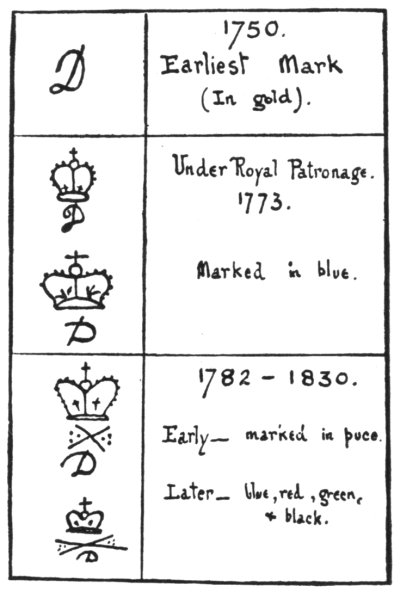 D
1750.
Earliest Mark
(In gold).
D
D
Under Royal Patronage.
1773.
Marked in blue.
D
D
1782 - 1830.
Early— marked in puce.
Later— blue, red, green,
& black.